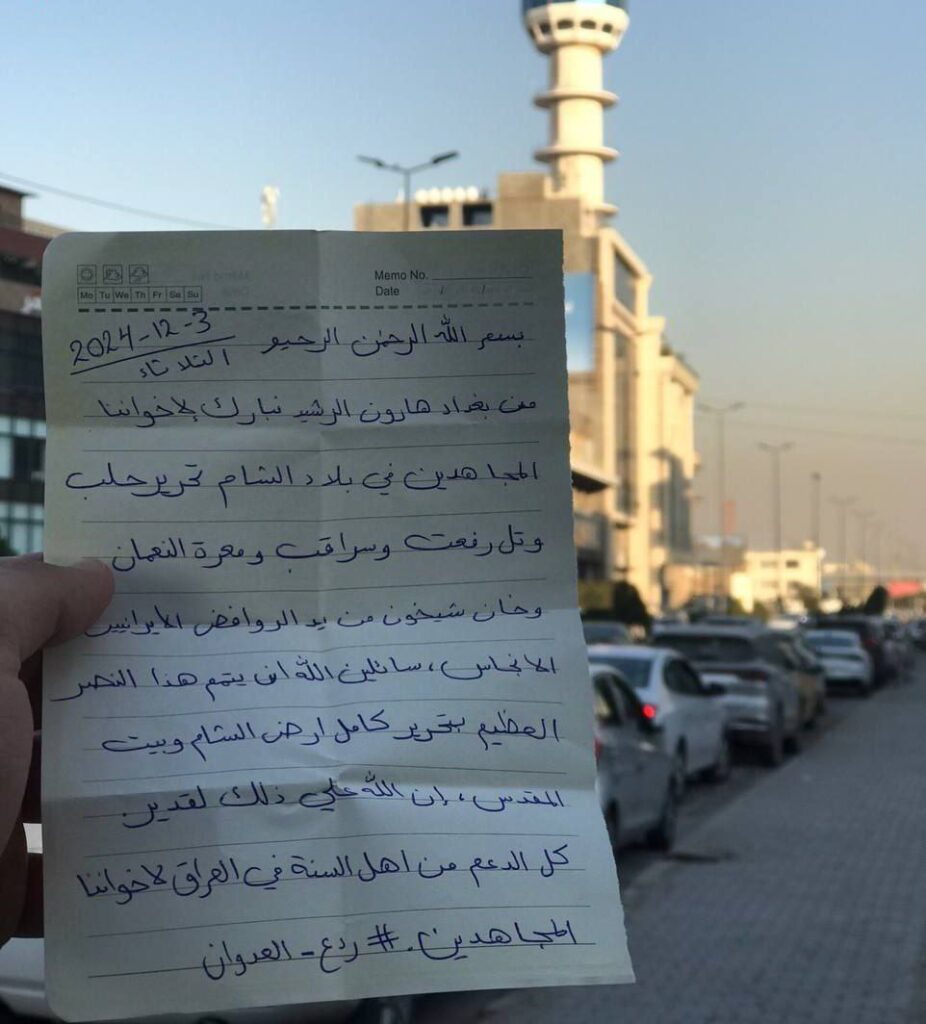 Memo No.
Date / /
Mo Tu We Th Fr Sa Su
بسم الله الرحمن الرحيم 2024-12-3
الثلاثاء
من بغداد هارون الرشيد نبارك لاخواننا
المجاهدين في بلاد الشام تحرير حلب
وتل رفعت وسراقب ومعرة النعمان
وخان شيخون من يد الروافض الأيرانيين
الانجاس، سائلين الله ان يتمم هذا النصر
العظيم بتحرير كامل ارض الشام وبيت
المقدس، إن الله علي ذلك لقدير.
كل الدعم من اهل السنة في العراق لاخواننا
المجاهدين. # ردع_العدوان